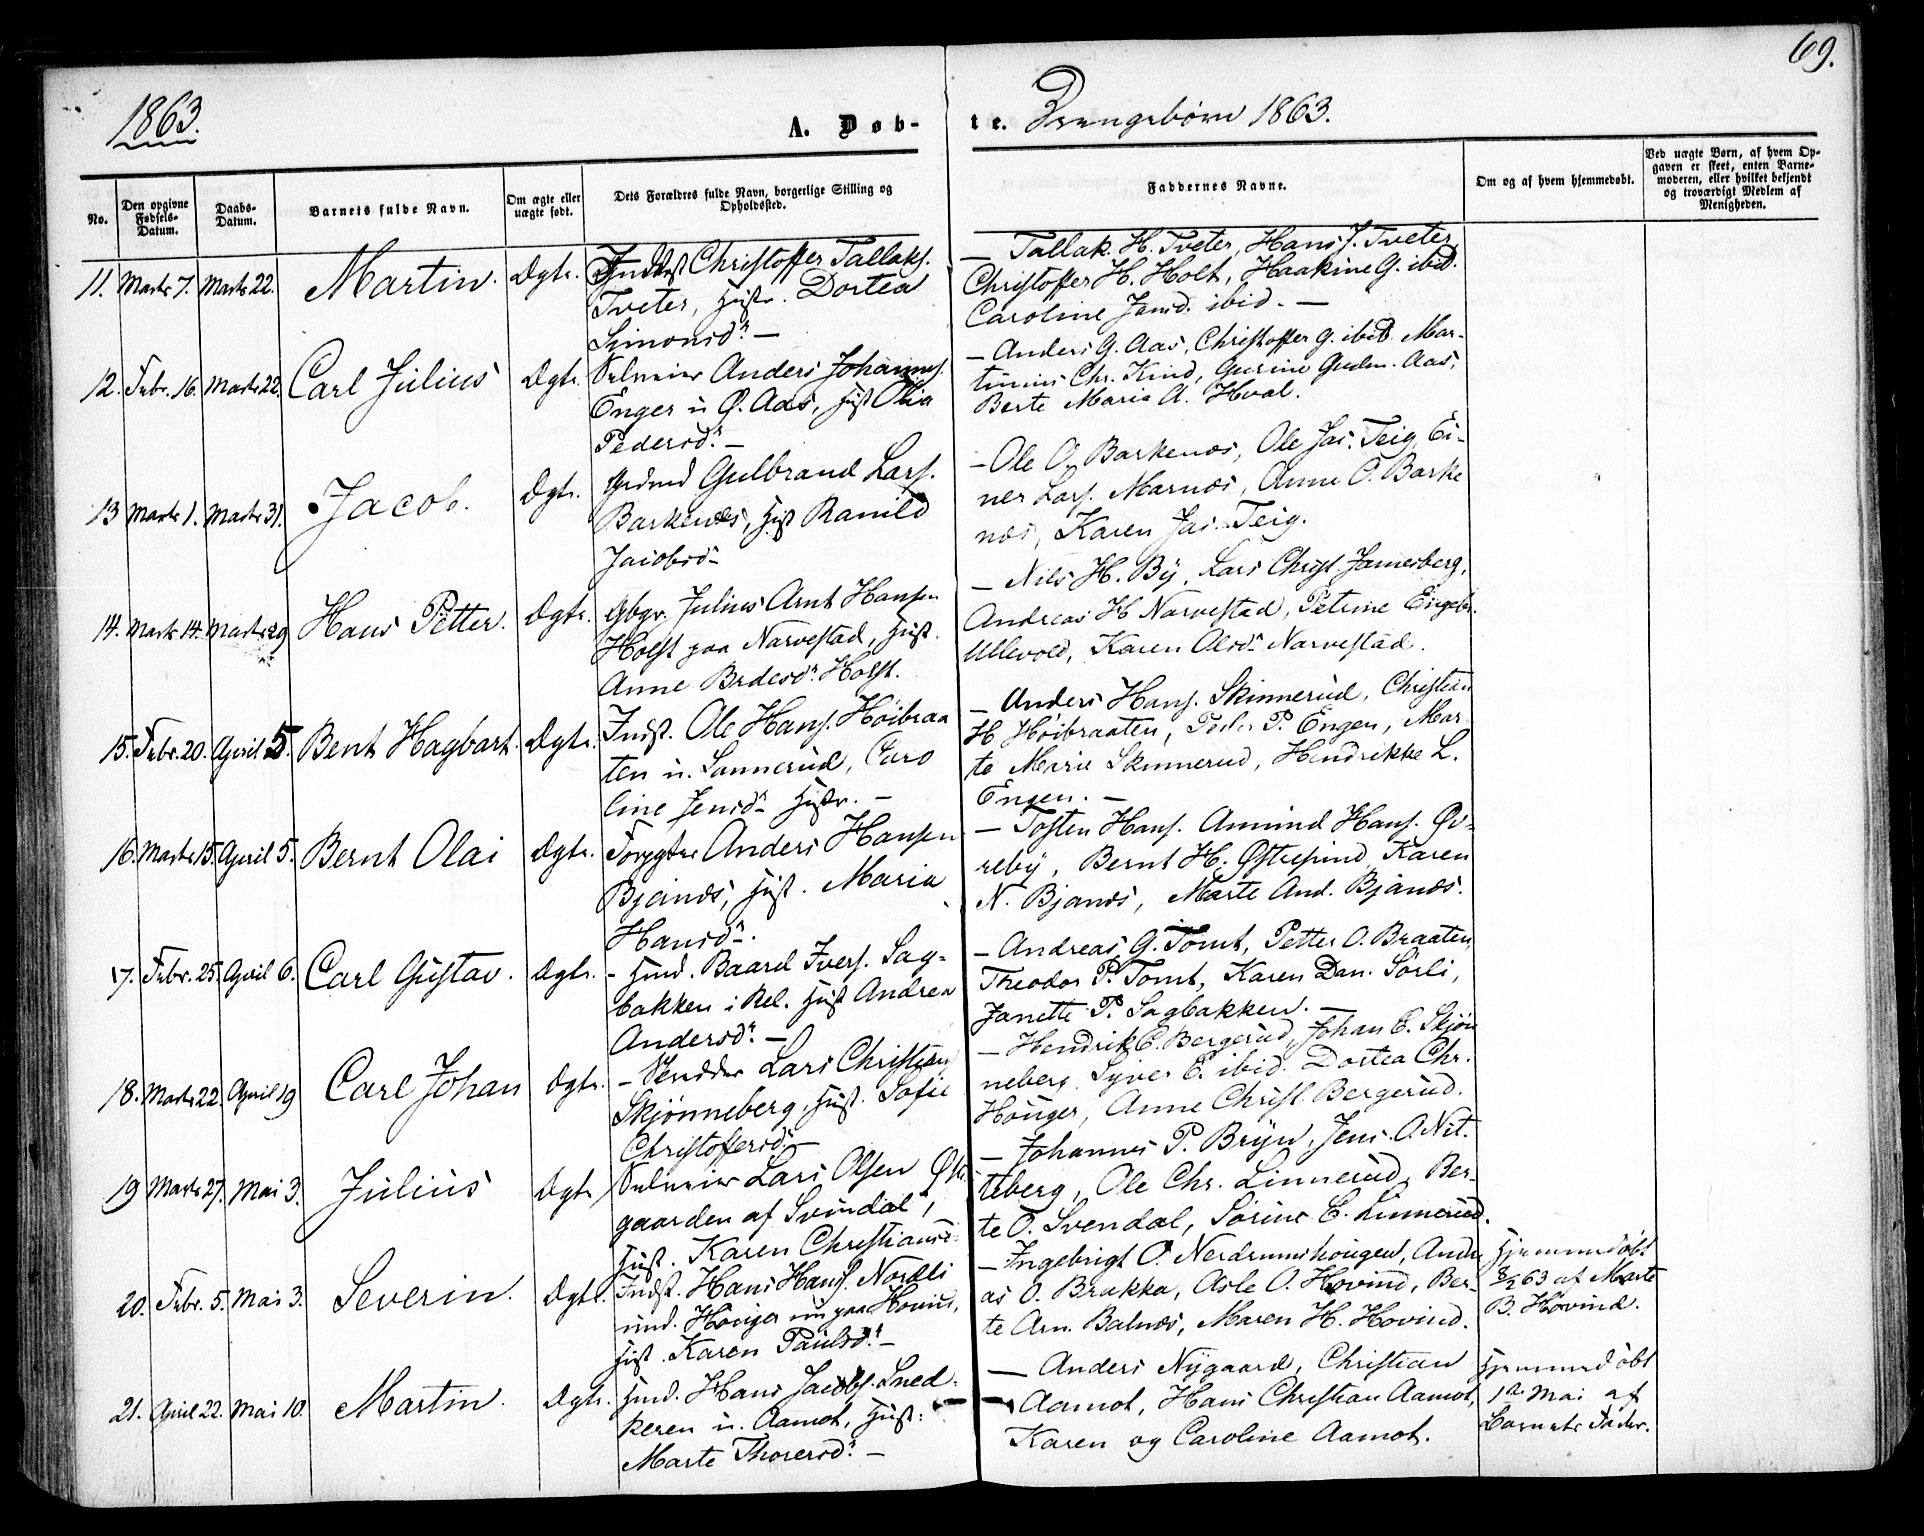 69.
1863.
A. Døb-
te. Drengebørn 1863.
No.
Den opgivne Fødsels-Datum.
Daabs-Datum.
Barnets fulde Navn.
Om ægte eller uægte født.
Dets Forældres fulde Navn, borgerlige Stilling og Opholdssted.
Faddernes Navne.
Om og af hvem hjemmedøbt.
Ved uægte Børn, af hvem Opgaven er skeet, enten Barnemoderen, eller hvilket bekjendt og troværdigt Medlem af Menigheden.
11. Marts 7. Marts 22. Martin. Ægte.
Indst Christoffer Tallaks.
Tveter, Hustr. Dortea
Simonsd. —
— Tallak H. Tveter, Hans J. Tveter,
Christoffer H. Holt, Haakine G. ibid.
Caroline Jensd. ibid. —
12. Febr. 16. Marts 22. Carl Julius Ægte.
Selveier Anders Johannes.
Enger u. Ø. Aas, Hust Olia
Pedersd. —
— Anders G. Aas, Christoffer G. ibid Mar-
tinius Chr. Kind, Gurine Gudm. Aas,
Berte Maria A. Hval.
13 Marts 1. Marts 31. Jacob. Ægte.
Grdmd Gulbrand Lars.
Barkenæs, Hust Ranild
Jacobsd —
— Ole O. Barkenæs, Ole Jac. Teig, Ei-
ner Lars. Marnæs, Anne O. Barke
næs, Karen Jac. Teig.
14. Marts 14. Marts 29 Hans Petter. Ægte.
Gbgr. Julius Arnt Hansen
Holst paa Narvestad, Hust.
Anne Brdesd. Holst.
— Nils H. By, Lars Christ. Jamesberg,
Andreas H Narvestad, Petrine Engebr.
Ullevold, Karen Olsd. Narvestad.
15. Febr. 20. April 5. Bent Hagbart. Ægte.
Indst. Ole Hans. Høibraa
ten u. Sannerud, Caro
line Jensd. Hustr. —
— Anders Hans. Skinnerud, Christian
H Høibraaten, Peder P. Engen, Mar-
te Marie Skinnerud, Hendrikke L.
Engen. —
16. Marts 15. April 5. Bernt Olai Ægte.
Forpgter Anders Hansen
Bjanæs, Hust. Maria
Hansd.
— Tosten Hans. Amund Hans. Øv-
reby, Bernt H. Østresind, Karen
N. Bjanæs, Marte And. Bjanæs.
17. Febr. 25. April 6. Carl Gustav. Ægte.
- Husmd. Baard Ivers. Sag-
bakken i Rel. Hust Andrea
Andersd. —
— Andreas G. Tomt, Petter O. Braaten,
Theodor P. Tomt, Karen Dan. Sørli,
Janette P. Sagbakken. —
18. Marts 22. April 19 Carl Johan Ægte.
- Skrædder Lars Christian
Skjønneberg, Hust. Sofie
Christoffersd. —
— Hendrik C. Bergerud, Johan E. Skjøn
neberg Syver E. ibid. Dortea Chr.
Houger, Anne Christ. Bergerud.
19 Marts 27. Mai 3. Julius Ægte
Selveier Lars Olsen Øst.
gaarden af Svindal,
Hust. Karen Christiansd.
— Johannes P. Bryn, Jens O. Nit-
teberg, Ole Chr. Linnerud, Ber-
te O. Svendal, Sørine C. Linnerud.
20. Febr. 5. Mai 3. Severin. Ægte.
Indst. Hans Hans. Nordli
und. Houger nu paa Hovind,
Hust. Karen Paulsd. —
— Ingebrigt O. Nerdrumshougen, Andre
as O. Brakka, Asle O. Hovind, Ber-
te Arn. Balnæs, Maren H. Hovind.
Hjemmedøbt
8/2 63 af Marte
B. Hovind.
21. April 22. Mai 10. Martin. Ægte.
Husmd. Hans Jacobs. Sned-
keren u. Aamot, Hust:
Marte Thoresd. —
— Anders Nygaard, Christian
— Aamot, Hans Christian Aamot,
Karen og Caroline Aamot.
Hjemmedøbt
1ste Mai af
Barnets Fader.